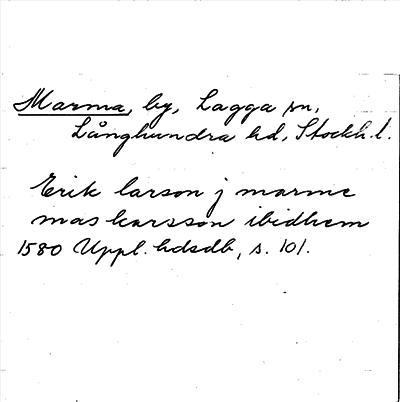 Marma, by, Lagga sn,
Långhundra hd, Stockh. l.
Erik larson j marme
mas larsson ibidhem
1580 Uppl. hdsdb, s. 101.